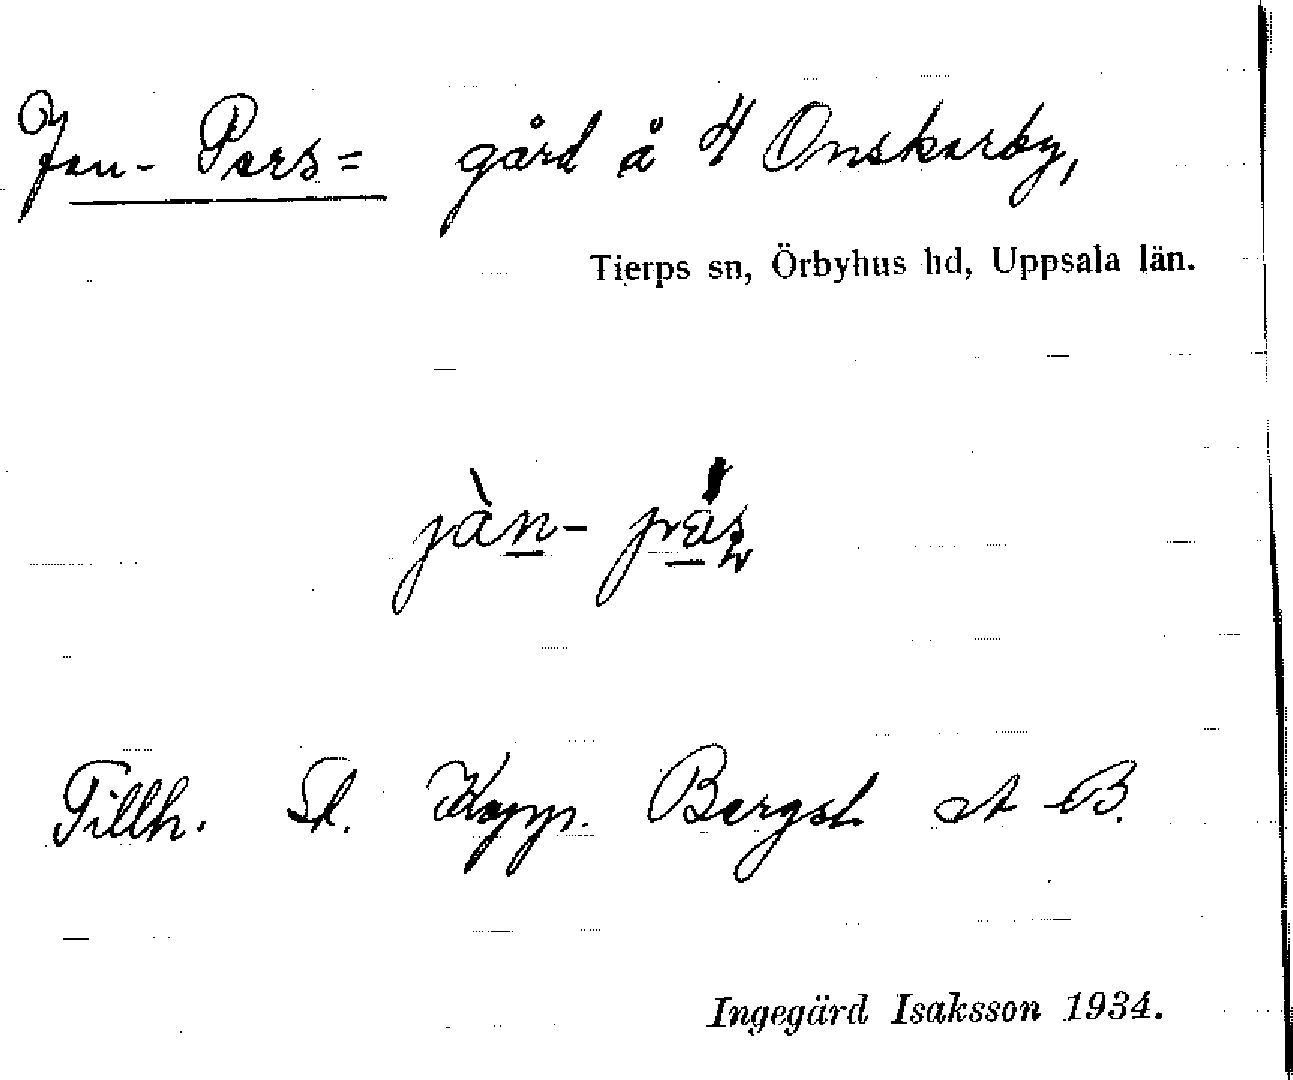 Jan-Pers= gård å 4 Onskarby,
Tierps sn, Örbyhus hd, Uppsala län.
jàn-
Tillh. St. Kopp. Bergsl. A B.
Ingegärd Isaksson 1934.